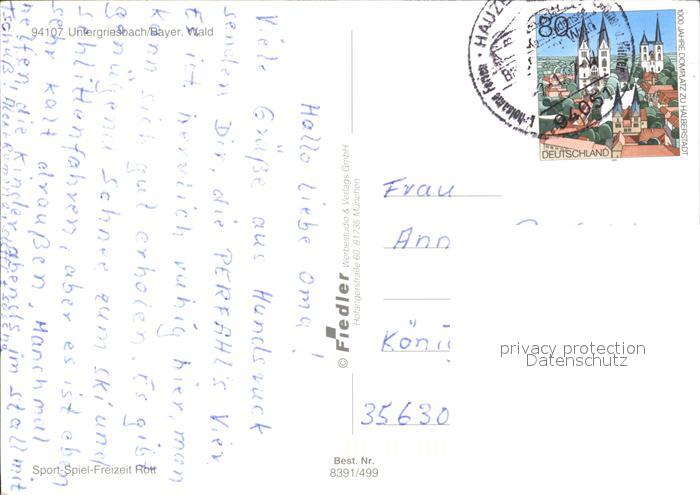 94107 Untergriesbach/Bayer. Wald
Hallo liebe Oma!
Viele Grüße aus Hundsruck
senden Dir, die PERFAHL's Vier
Es ist herrlich ruhig hier, man
kann sich gut erholen. Es gibt
genügend Schnee zum Ski und
Schlittenfahren, aber es ist eben
sehr kalt draußen. Manchmal
helfen die Kinder abends im Stall mit
Sport-Spiel-Freizeit Rott
© Fiedler Werbestudio & Verlags GmbH
Hofangerstraße 60, 81735 München
Best. Nr.
8391/499
HAUZE
94051
80
DEUTSCHLAND
1000 JAHRE DOMPLATZ ZU HALBERSTADT
Frau
Ann
Köni
35630
privacy protection
Datenschutz